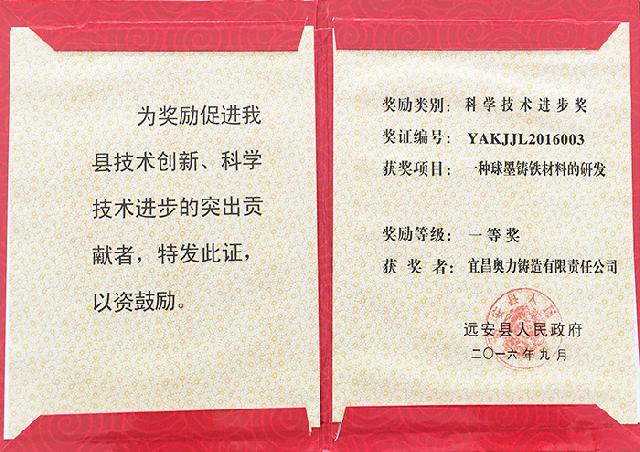 为奖励促进我
县技术创新、科学
技术进步的突出贡
献者，特发此证，
以资鼓励。
奖励类别：科学技术进步奖
奖证编号：YAKJJL2016003
获奖项目：一种球墨铸铁材料的研发
奖励等级：一等奖
获奖者：宜昌奥力铸造有限责任公司
远安县人民政府
二〇一六年九月